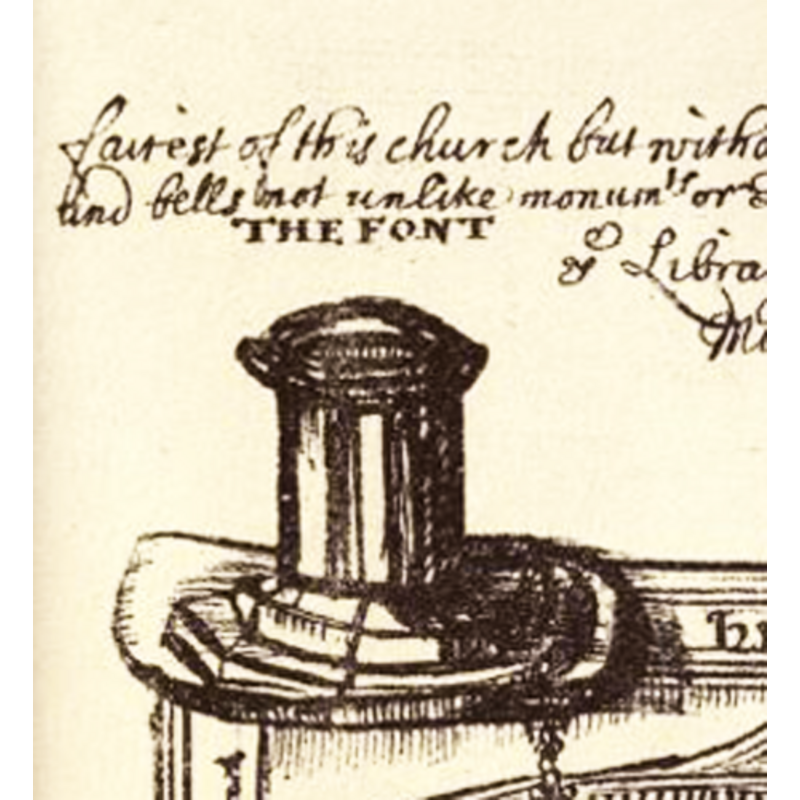 fairest of this church but witho
and bells not unlike monum^ts or
THE FONT
y^e Libra